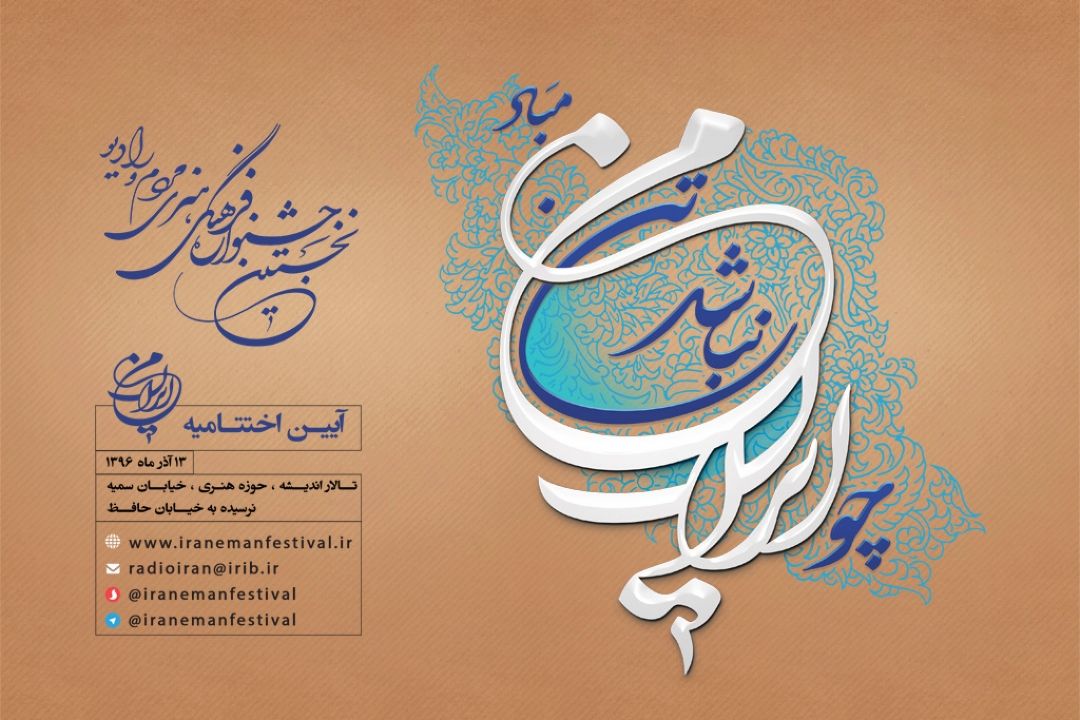 چو ایران نباشد تن من مباد
نخستین جشنواره فرهنگی هنری مردم و رادیو
ایران من
آیین اختتامیه
۱۳ آذر ماه ۱۳۹۶
تالار اندیشه ، حوزه هنری ، خیابان سمیه
نرسیده به خیابان حافظ
www.iranemanfestival.ir
radioiran@irib.ir
@iranemanfestival
@iranemanfestival